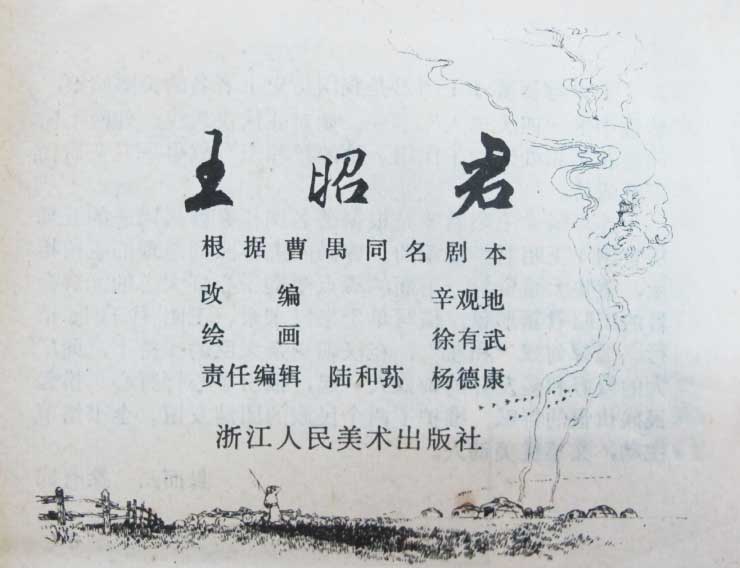 王昭君
根据曹禺同名剧本
改编 辛观地
绘画 徐有武
责任编辑 陆和荪 杨德康
浙江人民美术出版社